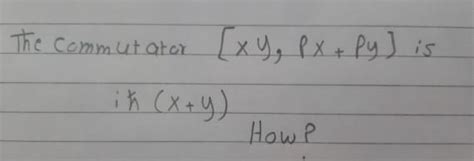 The commutator [xy, px + py] is
iħ (x+y)
How?